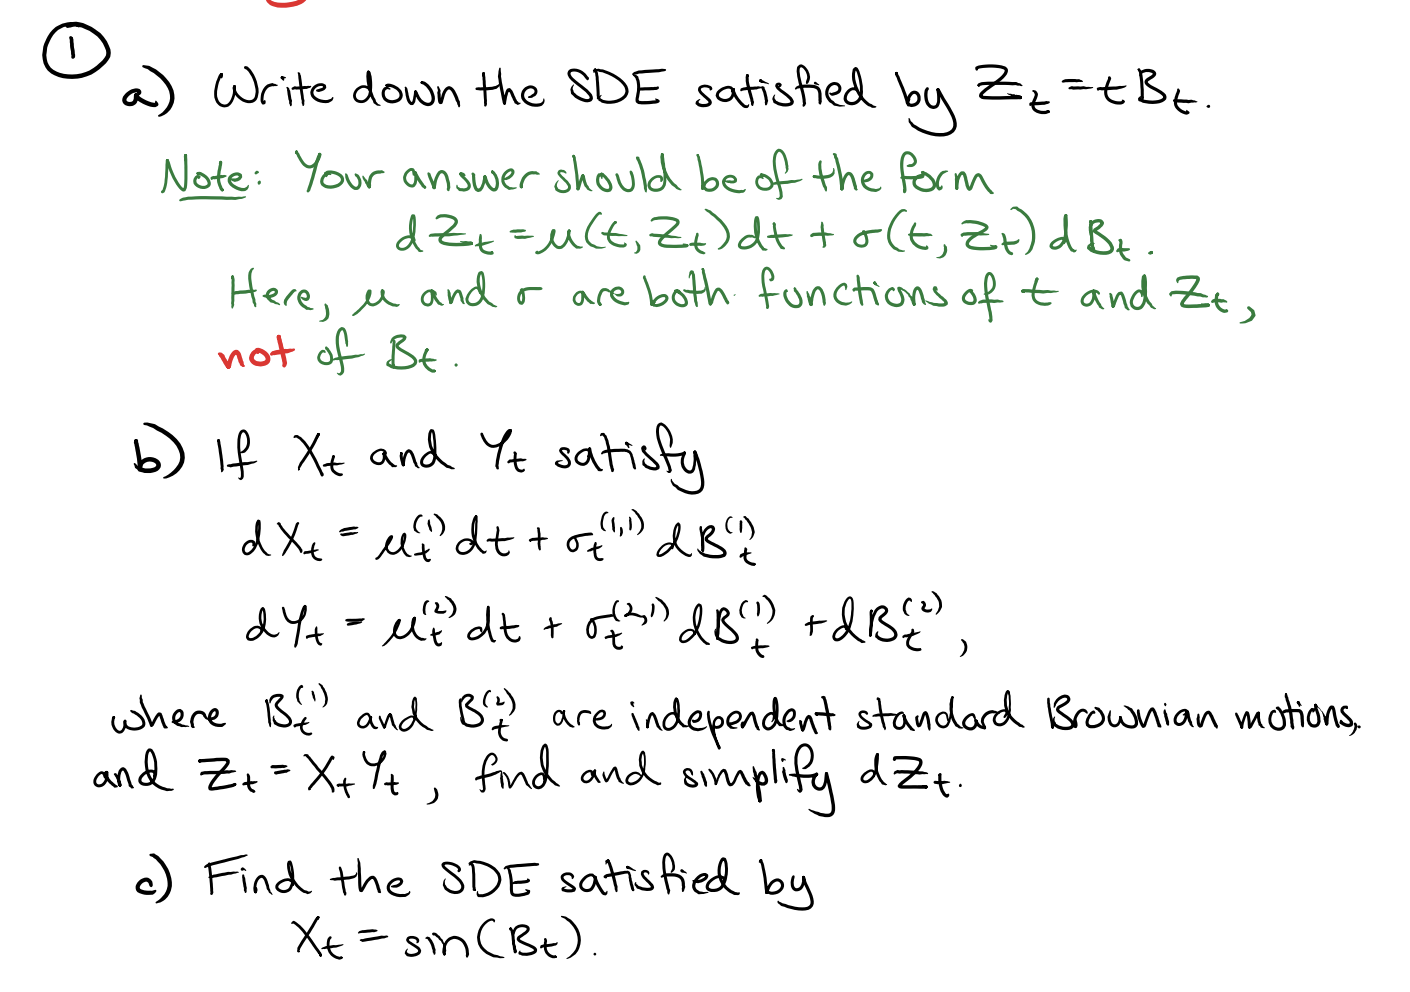 ①
a) Write down the SDE satisfied by Z_t = t B_t.
Note: Your answer should be of the form
dZ_t = μ(t, Z_t)dt + σ(t, Z_t)dB_t.
Here, μ and σ are both functions of t and Z_t,
not of B_t.
b) If X_t and Y_t satisfy
dX_t = μ_t^(1) dt + σ_t^(1,1) dB_t^(1)
dY_t = μ_t^(2) dt + σ_t^(2,1) dB_t^(1) + dB_t^(2),
where B_t^(1) and B_t^(2) are independent standard Brownian motions,
and Z_t = X_t Y_t, find and simplify dZ_t.
c) Find the SDE satisfied by
X_t = sin(B_t).